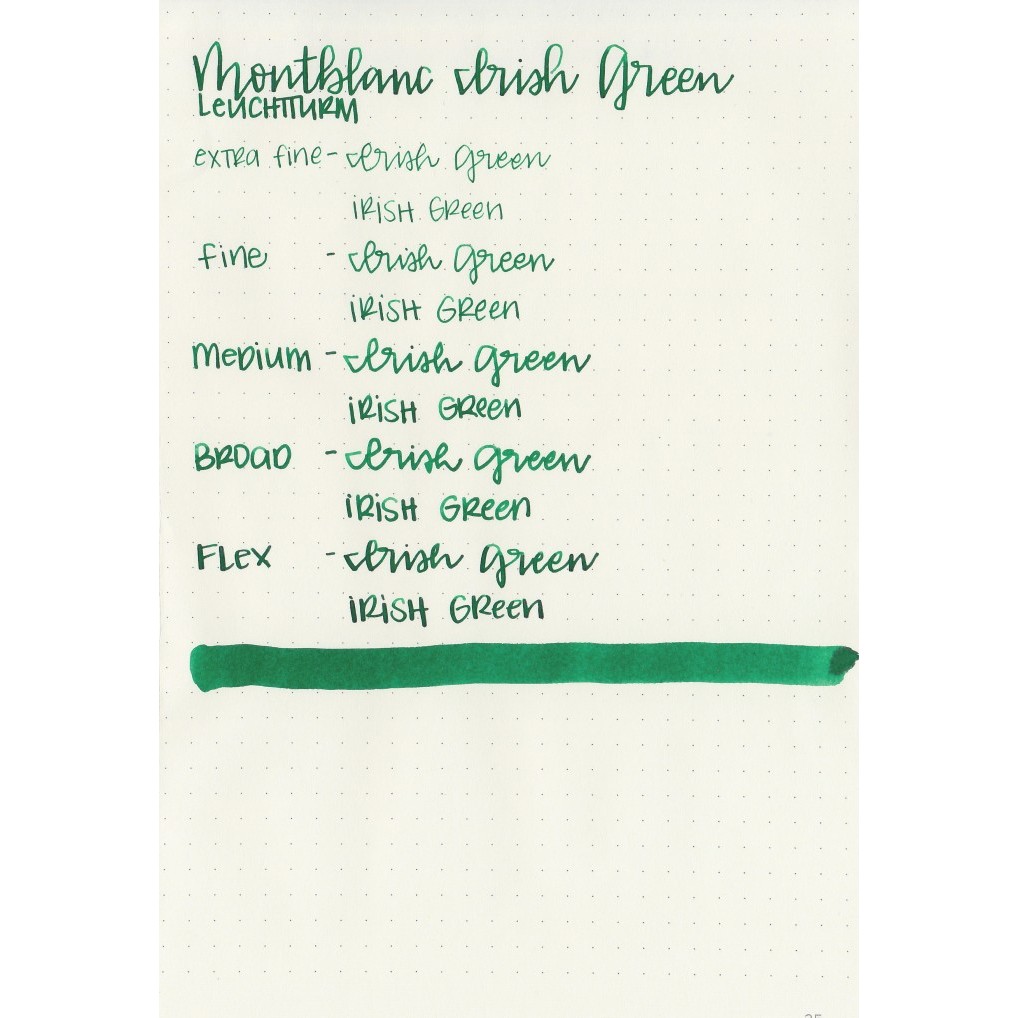 Montblanc Irish Green
LEUCHTTURM
extra fine - Irish Green
IRISH GREEN
fine - Irish Green
IRISH GREEN
MEDIUM - Irish Green
IRISH GREEN
BROAD - Irish Green
IRISH GREEN
FLEX - Irish Green
IRISH GREEN